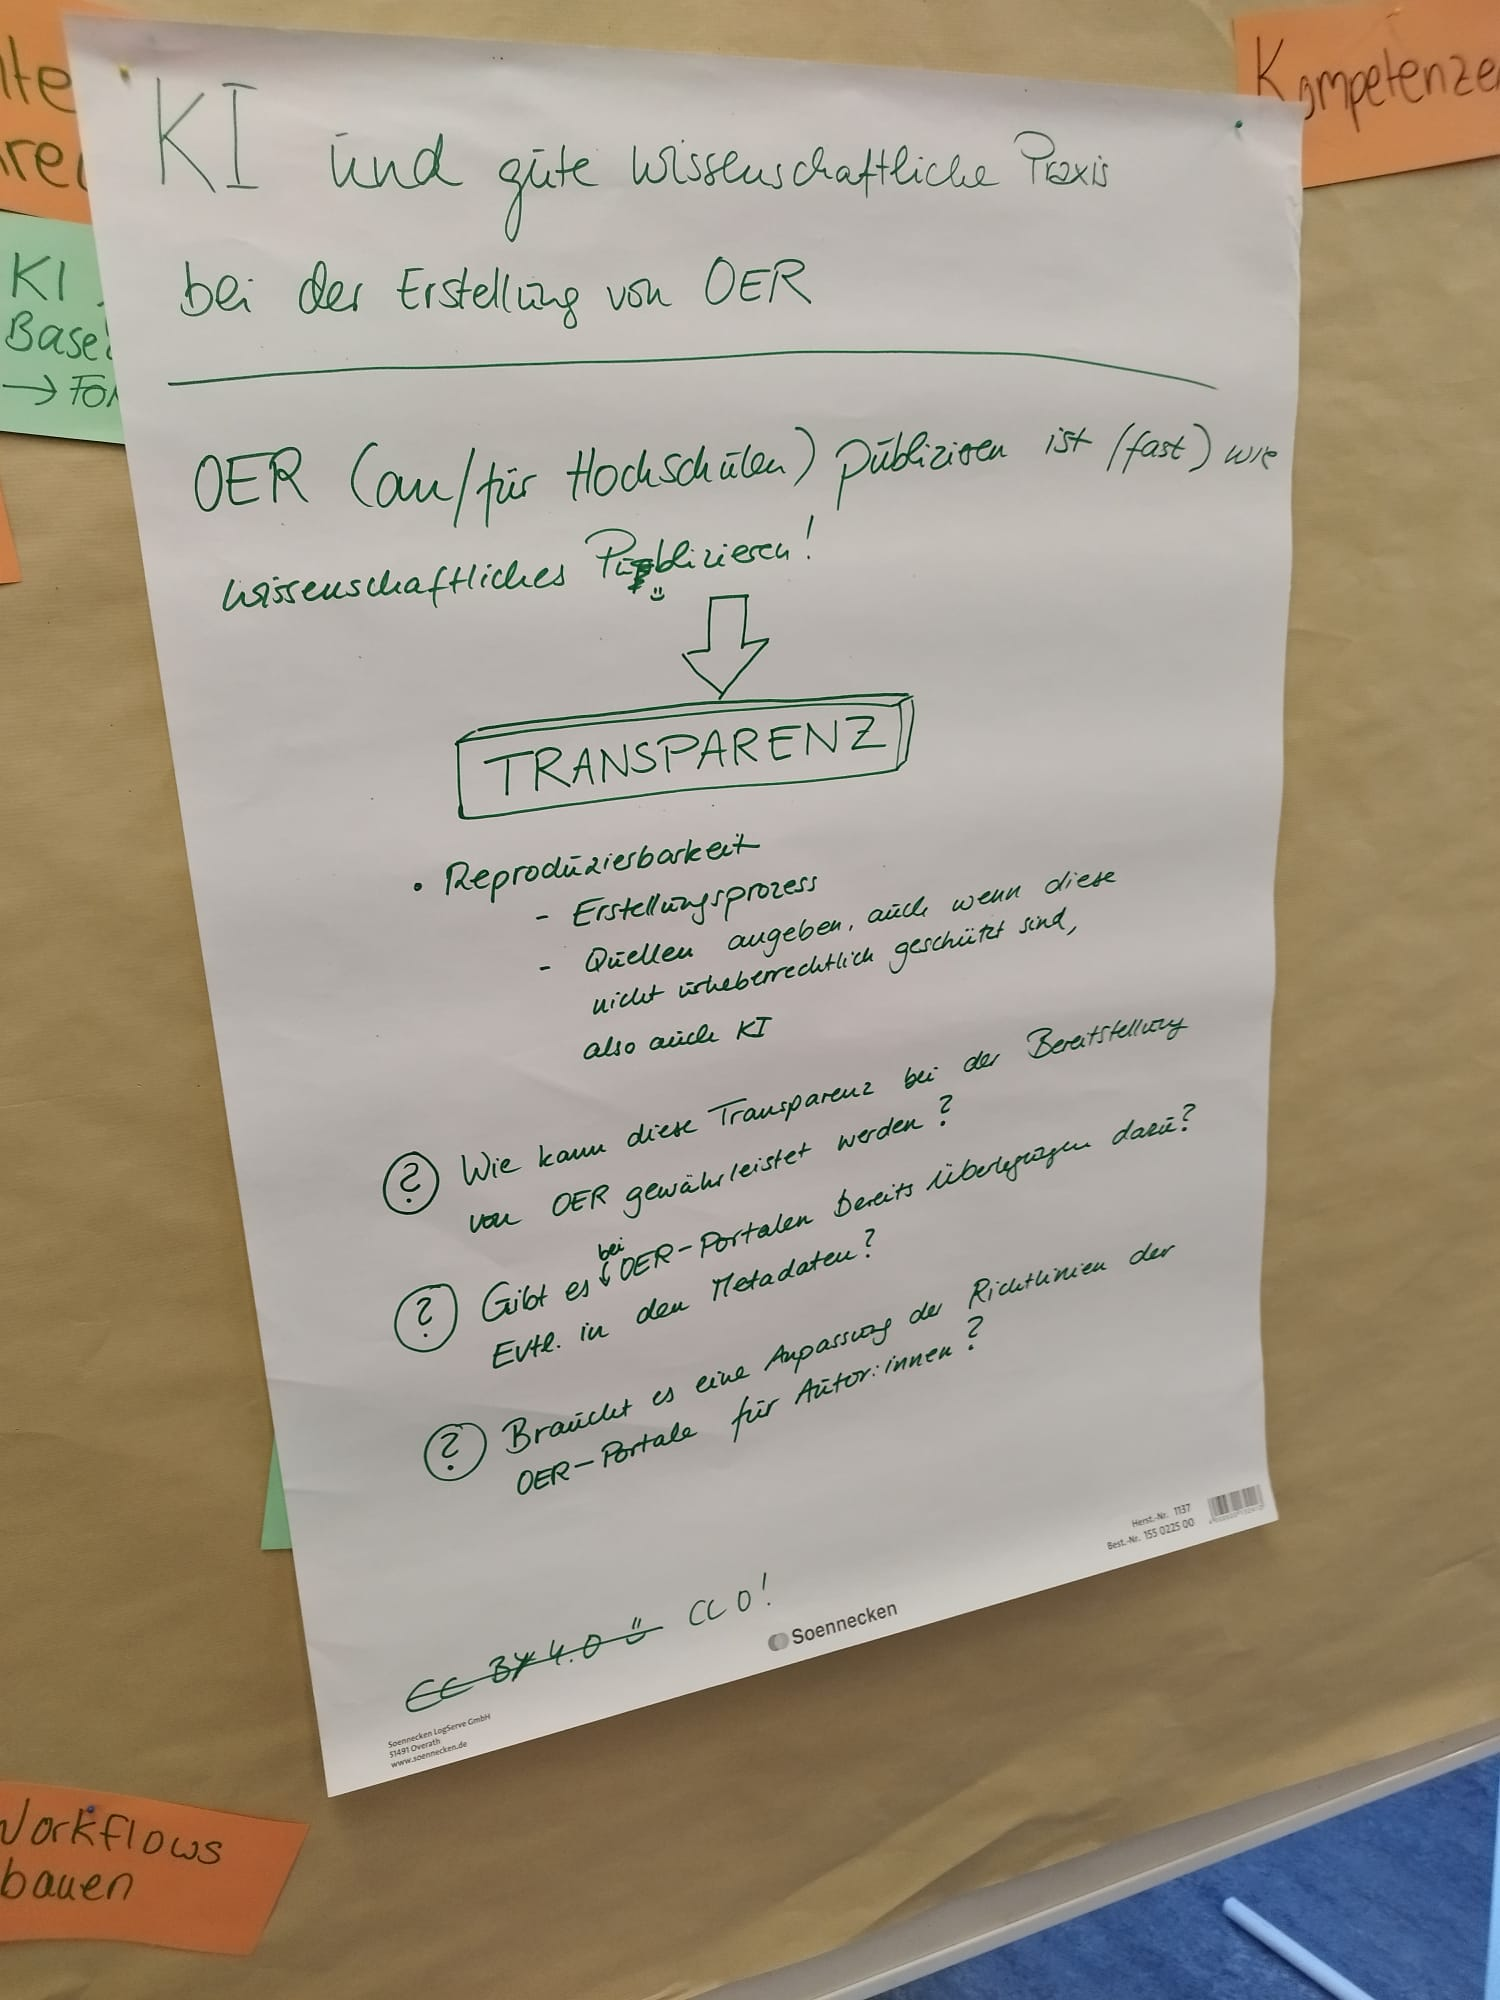 KI und gute wissenschaftliche Praxis
bei der Erstellung von OER
OER (an/für Hochschulen) publizieren ist (fast) wie
wissenschaftliches Publizieren!
TRANSPARENZ
• Reproduzierbarkeit
- Erstellungsprozess
- Quellen angeben, auch wenn diese
nicht urheberrechtlich geschützt sind,
also auch KI
? Wie kann diese Transparenz bei der Bereitstellung
von OER gewährleistet werden?
? Gibt es bei OER-Portalen bereits Überlegungen dazu?
Evtl. in den Metadaten?
? Braucht es eine Anpassung der Richtlinien der
OER-Portale für Autor:innen?
Herst.-Nr. 1137
Best.-Nr. 155 0225 00
CC BY 4.0 CC 0!
Soennecken
Soennecken LogServe GmbH
51491 Overath
www.soennecken.de
KI
Kompetenzen
Workflows
bauen